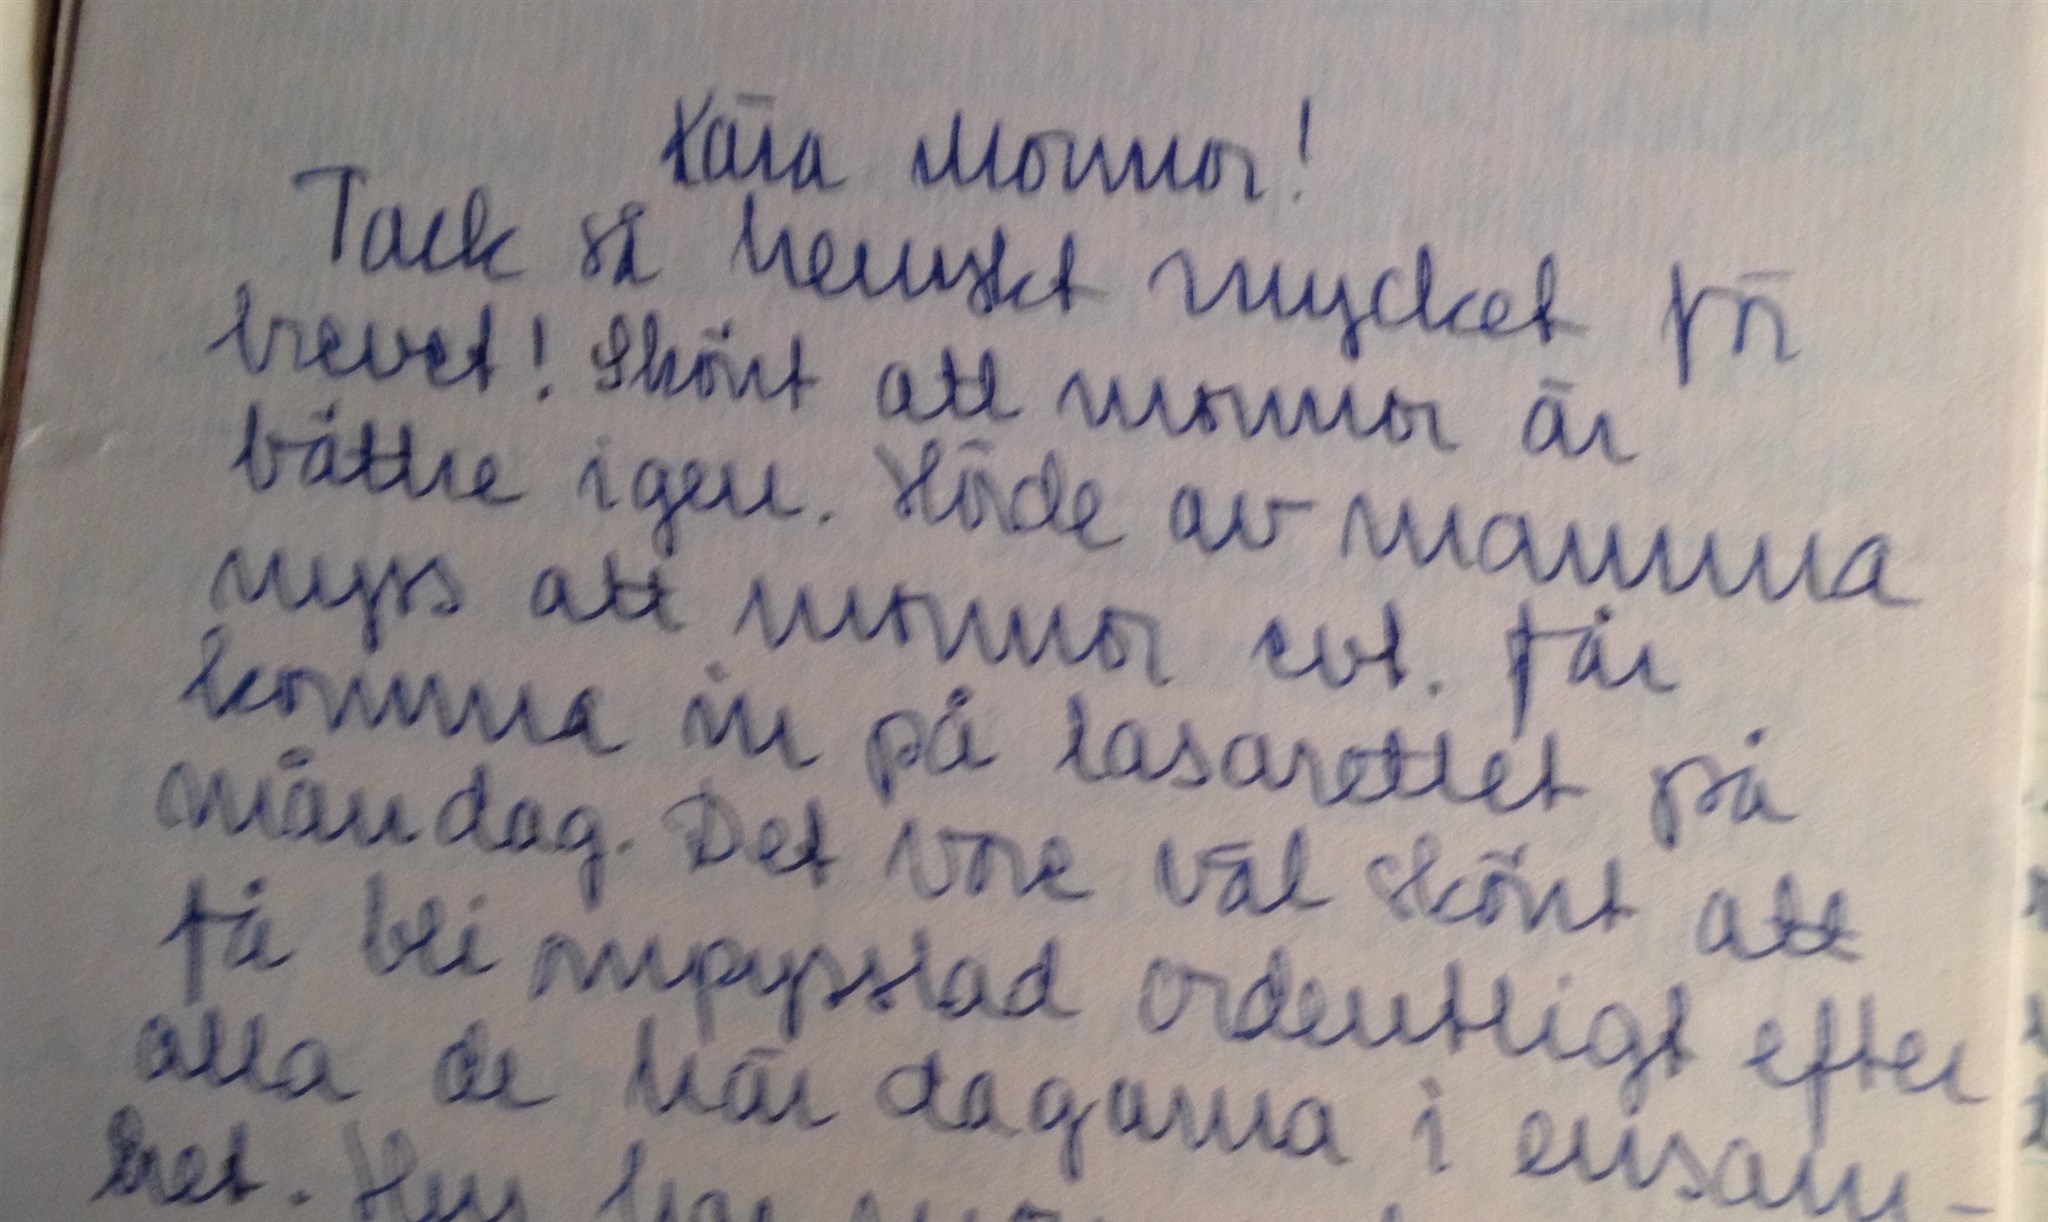 Kära Mormor!
Tack så hemskt mycket för
brevet! Skönt att mormor är
bättre igen. Hörde av mamma
nyss att mormor evt. får
komma in på lasarettet på
måndag. Det vore väl skönt att
få bli ompysslad ordentligt efter
alla de här dagarna i ensam-
het. Hur har